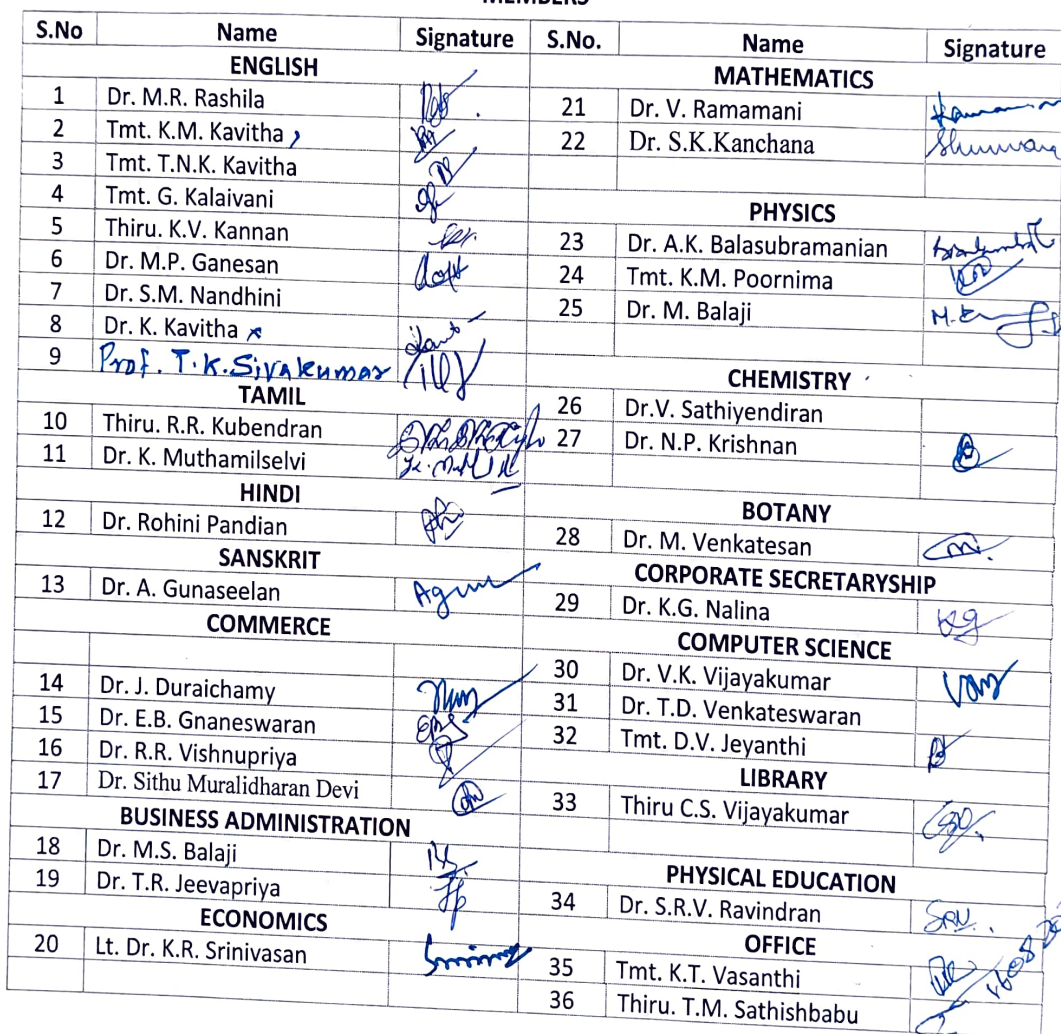 MEMBERS
S.No Name Signature
ENGLISH
1 Dr. M.R. Rashila
2 Tmt. K.M. Kavitha
3 Tmt. T.N.K. Kavitha
4 Tmt. G. Kalaivani
5 Thiru. K.V. Kannan
6 Dr. M.P. Ganesan
7 Dr. S.M. Nandhini
8 Dr. K. Kavitha
9 Prof. T.K.Sivakumar
TAMIL
10 Thiru. R.R. Kubendran
11 Dr. K. Muthamilselvi
HINDI
12 Dr. Rohini Pandian
SANSKRIT
13 Dr. A. Gunaseelan
COMMERCE
14 Dr. J. Duraichamy
15 Dr. E.B. Gnaneswaran
16 Dr. R.R. Vishnupriya
17 Dr. Sithu Muralidharan Devi
BUSINESS ADMINISTRATION
18 Dr. M.S. Balaji
19 Dr. T.R. Jeevapriya
ECONOMICS
20 Lt. Dr. K.R. Srinivasan
S.No. Name Signature
MATHEMATICS
21 Dr. V. Ramamani
22 Dr. S.K.Kanchana
PHYSICS
23 Dr. A.K. Balasubramanian
24 Tmt. K.M. Poornima
25 Dr. M. Balaji
CHEMISTRY
26 Dr.V. Sathiyendiran
27 Dr. N.P. Krishnan
BOTANY
28 Dr. M. Venkatesan
CORPORATE SECRETARYSHIP
29 Dr. K.G. Nalina
COMPUTER SCIENCE
30 Dr. V.K. Vijayakumar
31 Dr. T.D. Venkateswaran
32 Tmt. D.V. Jeyanthi
LIBRARY
33 Thiru C.S. Vijayakumar
PHYSICAL EDUCATION
34 Dr. S.R.V. Ravindran
OFFICE
35 Tmt. K.T. Vasanthi
36 Thiru. T.M. Sathishbabu